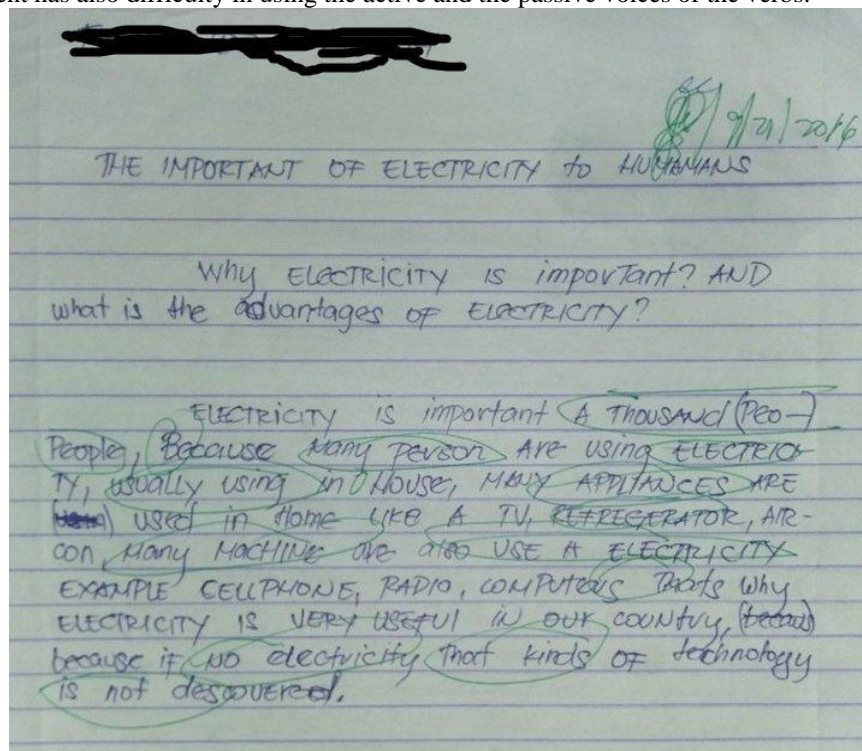 ent has also difficulty in using the active and the passive voices of the verbs.
9/21/2016
THE IMPORTANT OF ELECTRICITY to HUMAMANS
Why ELECTRICITY IS imporTant? AND
what is the advantages OF ELECTRICITY?
ELECTRICITY is important A THOUSANd (Peo-)
People, Because Many person Are using ELECTRICI-
TY, usually using in House, MANY APPLIANCES ARE
used in Home LIKE A TV, REFREGERATOR, AIR-
con Many MACHINE are also USE A ELECTRICITY
EXAMPLE CELLPHONE, RADIO, COMPUTERS Thats Why
ELECTRICITY IS VERY USEFUl IN our COUNTry, (becaus)
because if NO electricity That kinds OF technology
is not descovered.